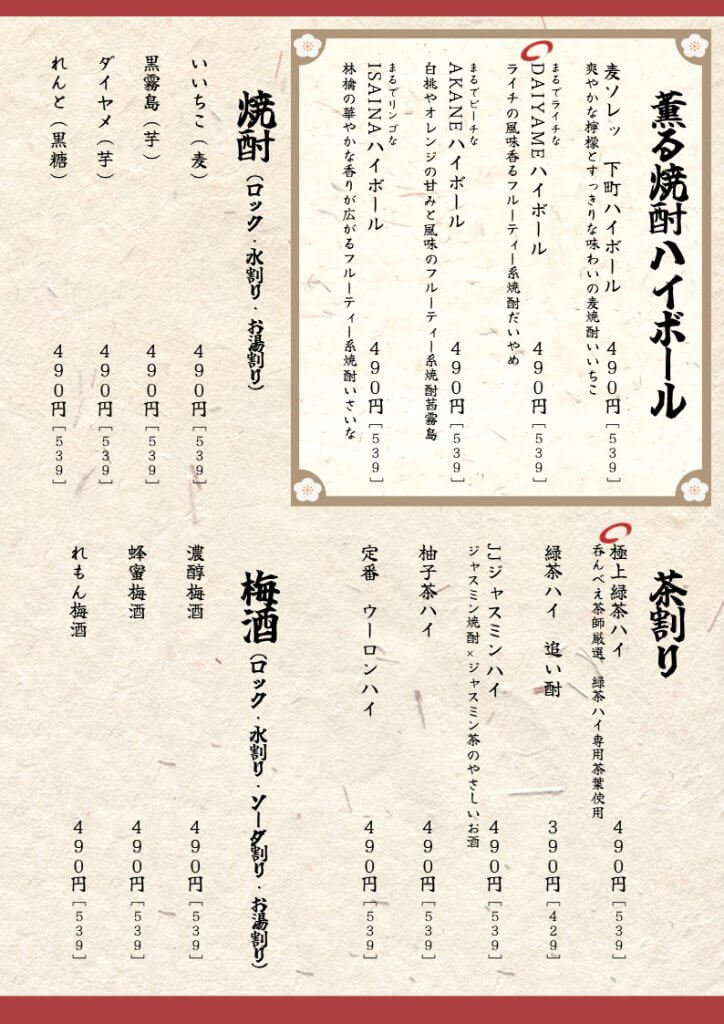 薫る焼酎ハイボール
麦ソレッ　下町ハイボール　４９０円［５３９］
爽やかな檸檬とすっきりな味わいの麦焼酎いいちこ
まるでライチな
DAIYAMEハイボール　４９０円［５３９］
ライチの風味香るフルーティー系焼酎だいやめ
まるでピーチな
AKANEハイボール　４９０円［５３９］
白桃やオレンジの甘みと風味のフルーティー系焼酎茜霧島
まるでリンゴな
ISAINAハイボール　４９０円［５３９］
林檎の華やかな香りが広がるフルーティー系焼酎いさいな
焼酎（ロック・水割り・お湯割り）
いいちこ（麦）　４９０円［５３９］
黒霧島（芋）　４９０円［５３９］
ダイヤメ（芋）　４９０円［５３９］
れんと（黒糖）　４９０円［５３９］
茶割り
極上緑茶ハイ　４９０円［５３９］
呑んべえ茶師厳選　緑茶ハイ専用茶葉使用
緑茶ハイ　追い酎　３９０円［４２９］
JJジャスミンハイ　４９０円［５３９］
ジャスミン焼酎×ジャスミン茶のやさしいお酒
柚子茶ハイ　４９０円［５３９］
定番　ウーロンハイ　４９０円［５３９］
梅酒（ロック・水割り・ソーダ割り・お湯割り）
濃醇梅酒　４９０円［５３９］
蜂蜜梅酒　４９０円［５３９］
れもん梅酒　４９０円［５３９］